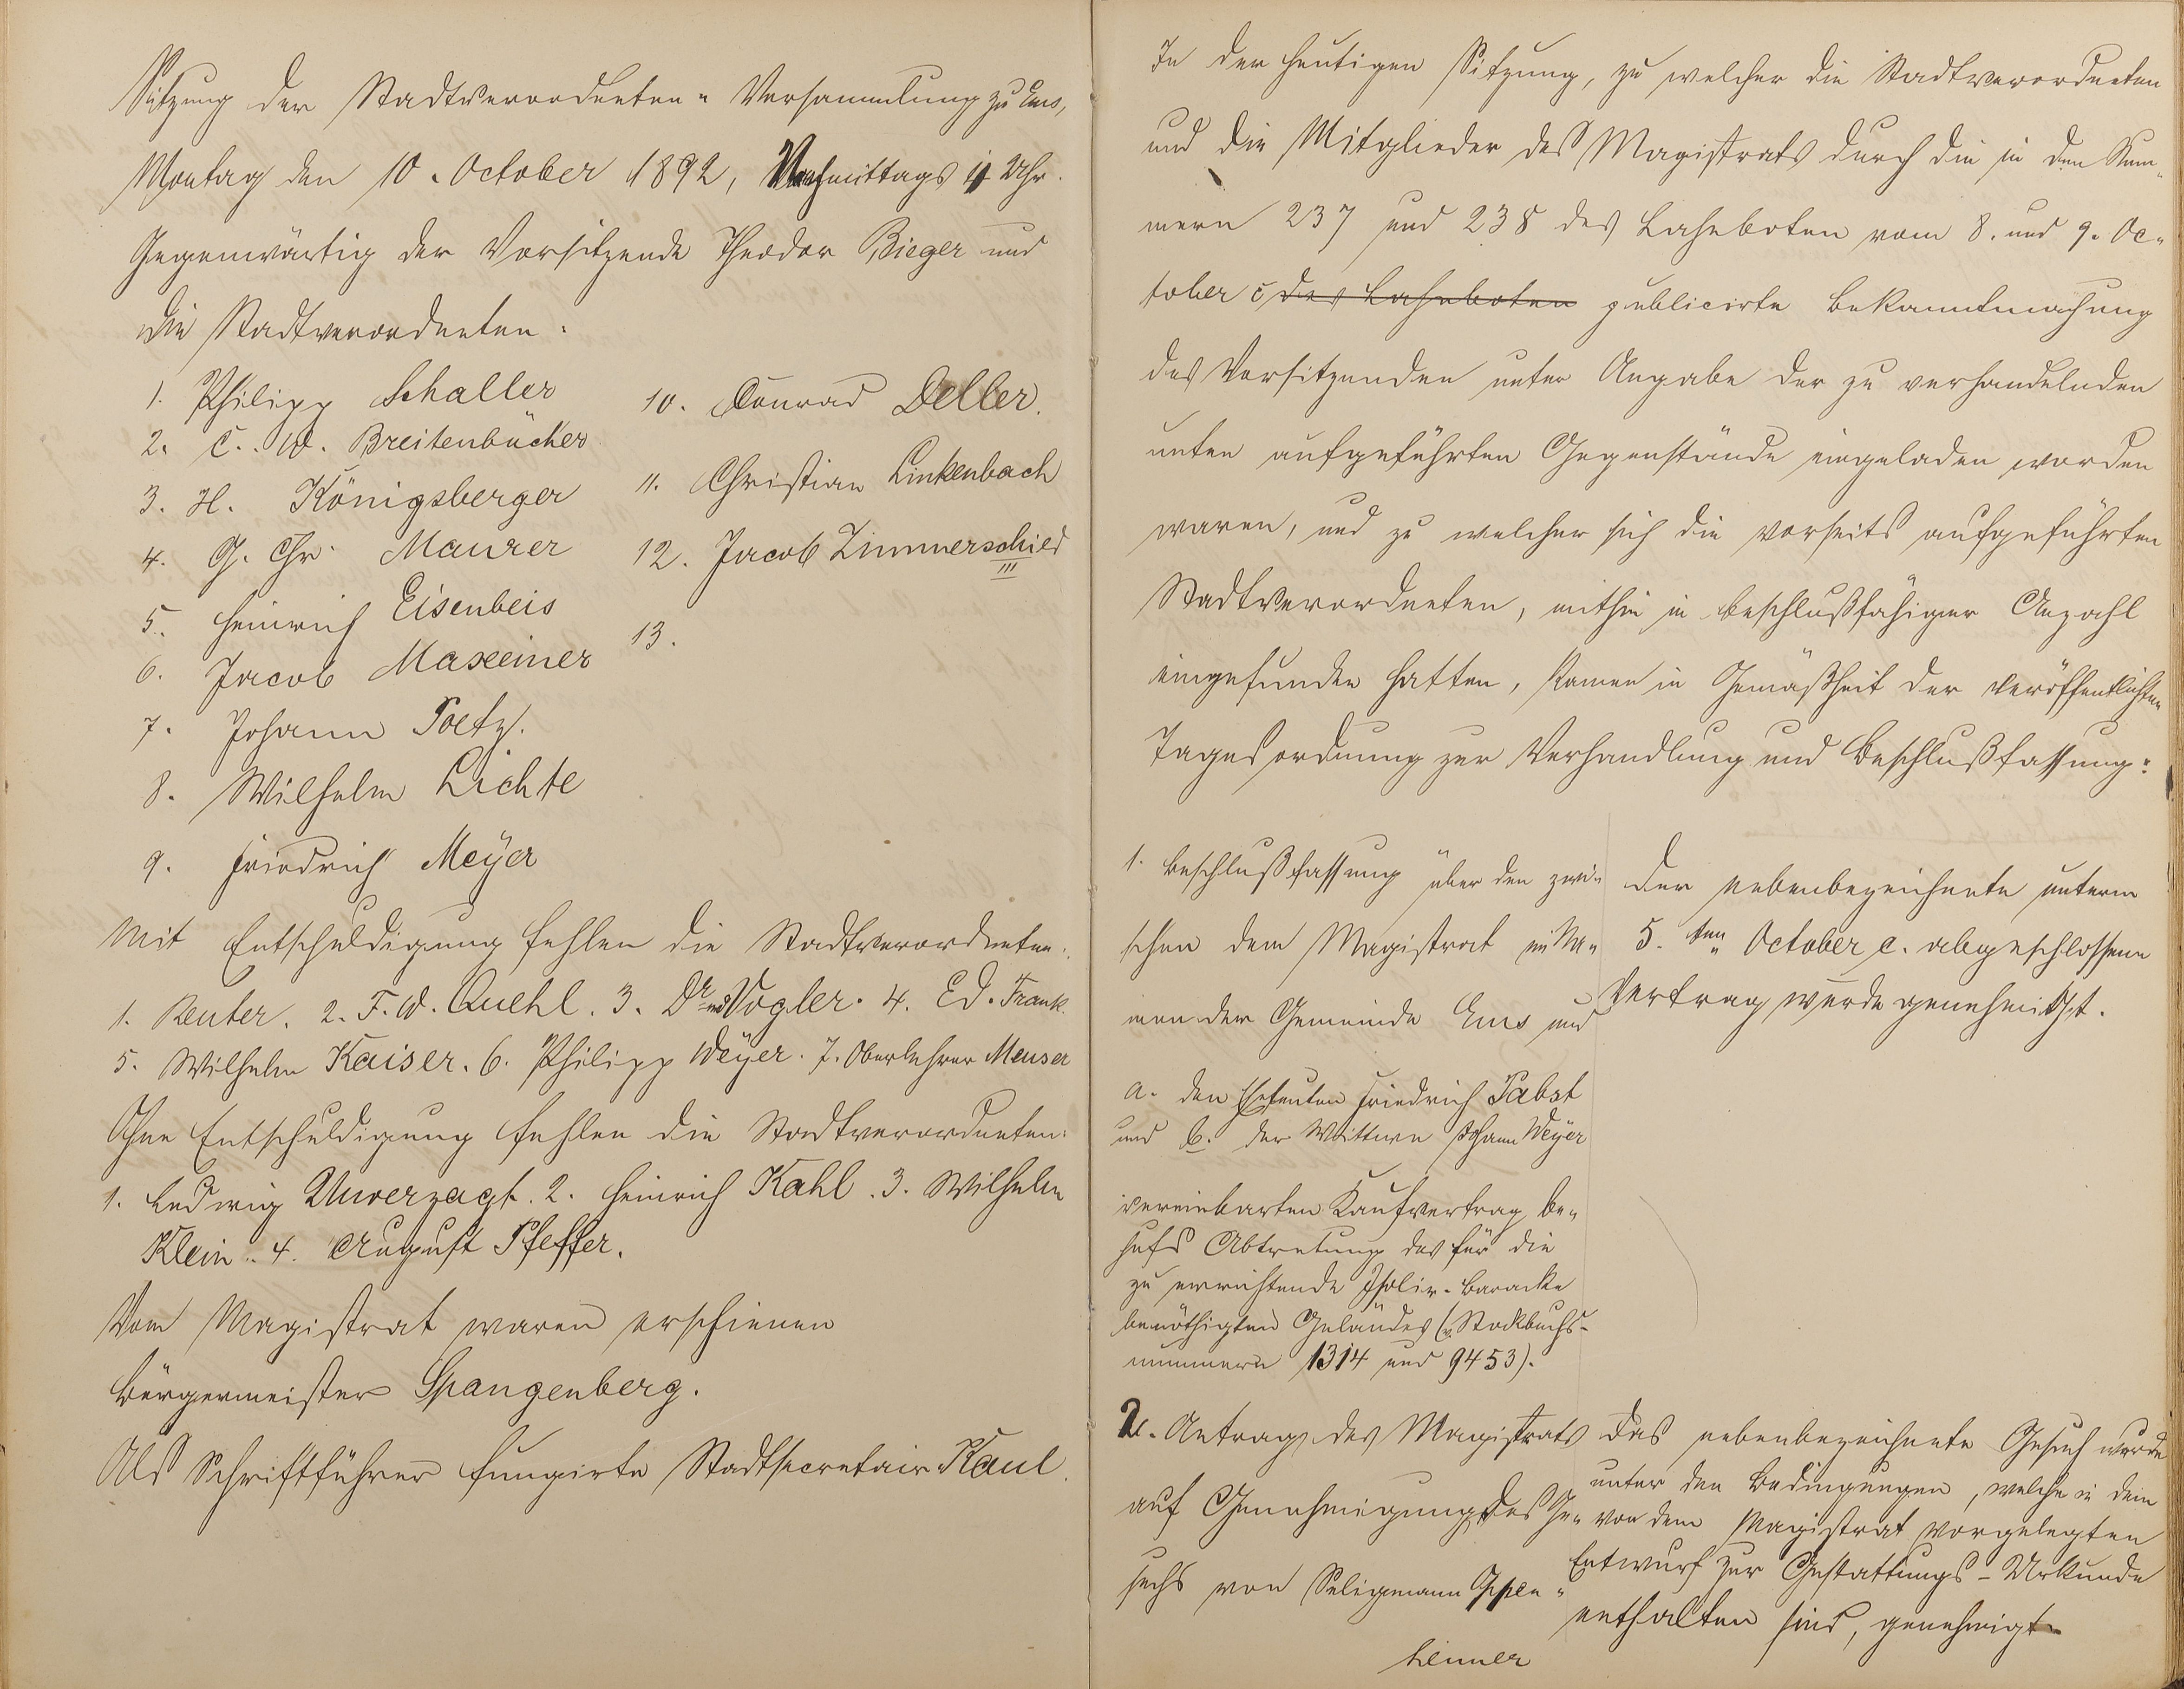 Sitzung der Stadtverordneten-Versammlung zu Ems,
Montag den 10. October 1892, Nachmittags 4 Uhr.
Gegenwärtig der Vorsitzende Theodor Bieger und
die Stadtverordneten:
1. Philipp Schaller
2. C. W. Breitenbücher
3. H. Königsberger
4. G. Chr. Maurer
5. Heinrich Eisenbeis
6. Jacob Maxeiner
7. Johann Poetz.
8. Wilhelm Lichte
9. Friedrich Meÿer
10. Conrad Deller.
11. Christian Linkenbach
12. Jacob Zimmerschied
III
13.
Mit Entschuldigung fehlen die Stadtverordneten:
1. Reuter. 2. F. W. Quehl. 3. Dr. Vogler. 4. Ed. Frank.
5. Wilhelm Kaiser. 6. Philipp Weÿer. 7. Oberlehrer Meuser
Ohne Entschuldigung fehlen die Stadtverordneten:
1. Ludwig Unverzagt. 2. Heinrich Kahl. 3. Wilhelm
Klein. 4. August Pfeffer.
Vom Magistrat waren erschienen
Bürgermeister Spangenberg.
Als Schriftführer fungirte Stadtsecretair Kaul.
In der heutigen Sitzung, zu welcher die Stadtverordneten
und die Mitglieder des Magistrats durch die in den Num-
mern 237 und 238 des Lahnboten vom 8. und 9. Oc-
tober c des Lahnboten publicirte Bekanntmachung
des Vorsitzenden unter Angabe der zu verhandelnden
unten aufgeführten Gegenstände eingeladen worden
waren, und zu welcher sich die vorseits aufgeführten
Stadtverordneten, mithin in beschlußfähiger Anzahl
eingefunden hatten, kamen in Gemäßheit der veröffentlichten
Tagesordnung zur Verhandlung und Beschlußfassung:
1. Beschlußfassung über den zwi-
schen dem Magistrat im Na-
men der Gemeinde Ems und
a. den Eheleuten Friedrich Pabst
und b. der Wittwe Johann Weÿer
vereinbarten Kaufvertrag be-
hufs Abtretung des für die
zu errichtende Isolir-Baracke
benöthigten Geländes (Stockbuchs-
nummern 1314 und 9453).
Der nebenbezeichnete unterm
5. ten October c. abgeschlossene
Vertrag wurde genehmigt.
2. Antrag des Magistrats
auf Genehmigung des Ge-
suchs von Seligmann Oppen-
heimer
Das nebenbezeichnete Gesuch wurde
unter den Bedingungen, welche in dem
von dem Magistrat vorgelegten
Entwurf zur Gestattungs-Urkunde
enthalten sind, genehmigt